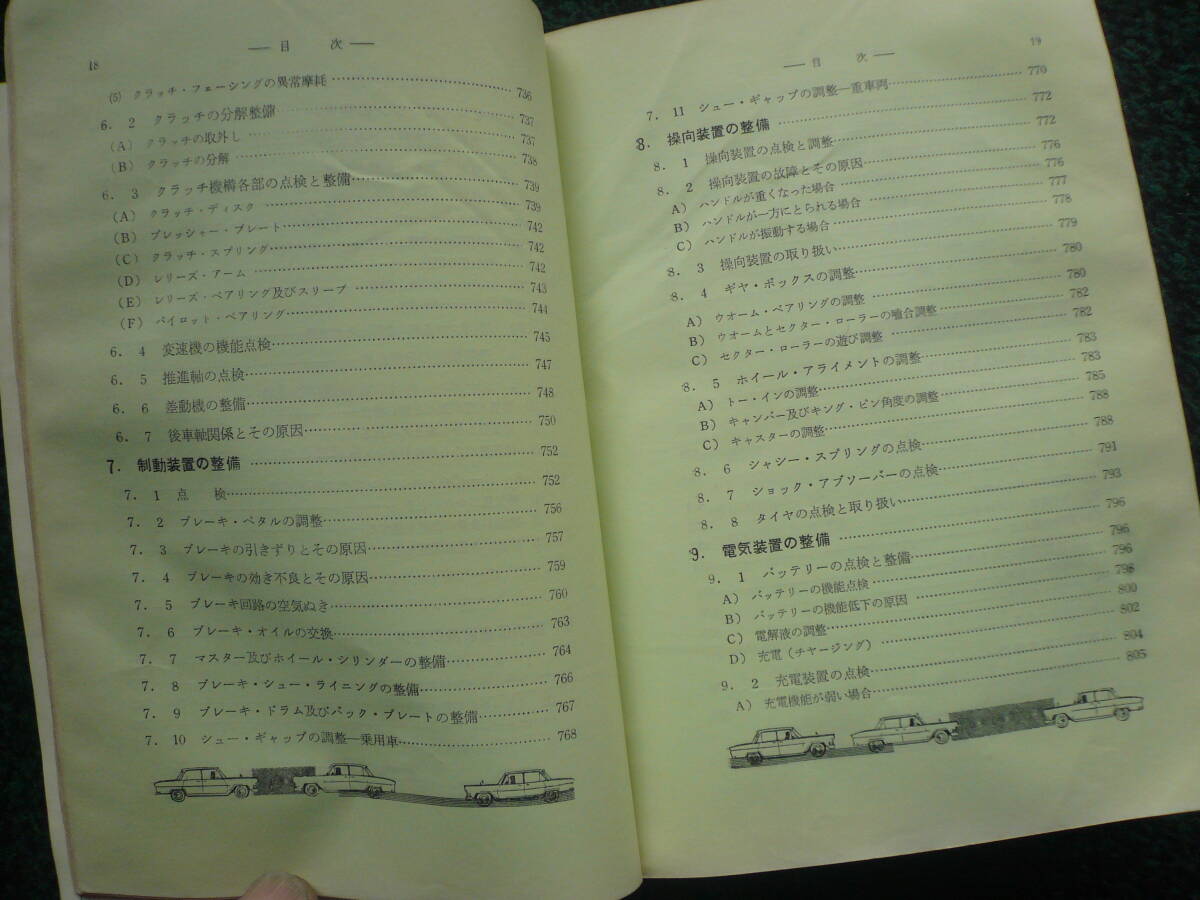 18
— 目 次 —
(5) クラッチ・フェーシングの異常摩耗 …… 736
6. 2 クラッチの分解整備 …… 737
(A) クラッチの取外し …… 737
(B) クラッチの分解 …… 738
6. 3 クラッチ機構各部の点検と整備 …… 739
(A) クラッチ・ディスク …… 739
(B) プレッシャー・プレート …… 742
(C) クラッチ・スプリング …… 742
(D) レリーズ・アーム …… 742
(E) レリーズ・ベアリング及びスリーブ …… 743
(F) パイロット・ベアリング …… 744
6. 4 変速機の機能点検 …… 745
6. 5 推進軸の点検 …… 747
6. 6 差動機の整備 …… 748
6. 7 後車軸関係とその原因 …… 750
7. 制動装置の整備 …… 752
7. 1 点 検 …… 752
7. 2 ブレーキ・ペタルの調整 …… 756
7. 3 ブレーキの引きずりとその原因 …… 757
7. 4 ブレーキの効き不良とその原因 …… 759
7. 5 ブレーキ回路の空気ぬき …… 760
7. 6 ブレーキ・オイルの交換 …… 763
7. 7 マスター及びホイール・シリンダーの整備 …… 764
7. 8 ブレーキ・シュー・ライニングの整備 …… 766
7. 9 ブレーキ・ドラム及びバック・プレートの整備 …… 767
7. 10 シュー・ギャップの調整—乗用車 …… 768
— 目 次 —
19
7. 11 シュー・ギャップの調整—重車両 …… 770
8. 操向装置の整備 …… 772
8. 1 操向装置の点検と調整 …… 772
8. 2 操向装置の故障とその原因 …… 776
A) ハンドルが重くなった場合 …… 776
B) ハンドルが一方にとられる場合 …… 777
C) ハンドルが振動する場合 …… 778
8. 3 操向装置の取り扱い …… 779
8. 4 ギヤ・ボックスの調整 …… 780
A) ウオーム・ベアリングの調整 …… 780
B) ウオームとセクター・ローラーの噛合調整 …… 782
C) セクター・ローラーの遊び調整 …… 782
8. 5 ホイール・アライメントの調整 …… 783
A) トー・インの調整 …… 783
B) キャンバー及びキング・ピン角度の調整 …… 785
C) キャスターの調整 …… 788
8. 6 シャシー・スプリングの点検 …… 788
8. 7 ショック・アブソーバーの点検 …… 791
8. 8 タイヤの点検と取り扱い …… 793
9. 電気装置の整備 …… 796
9. 1 バッテリーの点検と整備 …… 796
A) バッテリーの機能点検 …… 796
B) バッテリーの機能低下の原因 …… 798
C) 電解液の調整 …… 800
D) 充電(チャージング) …… 802
9. 2 充電装置の点検 …… 804
A) 充電機能が弱い場合 …… 805